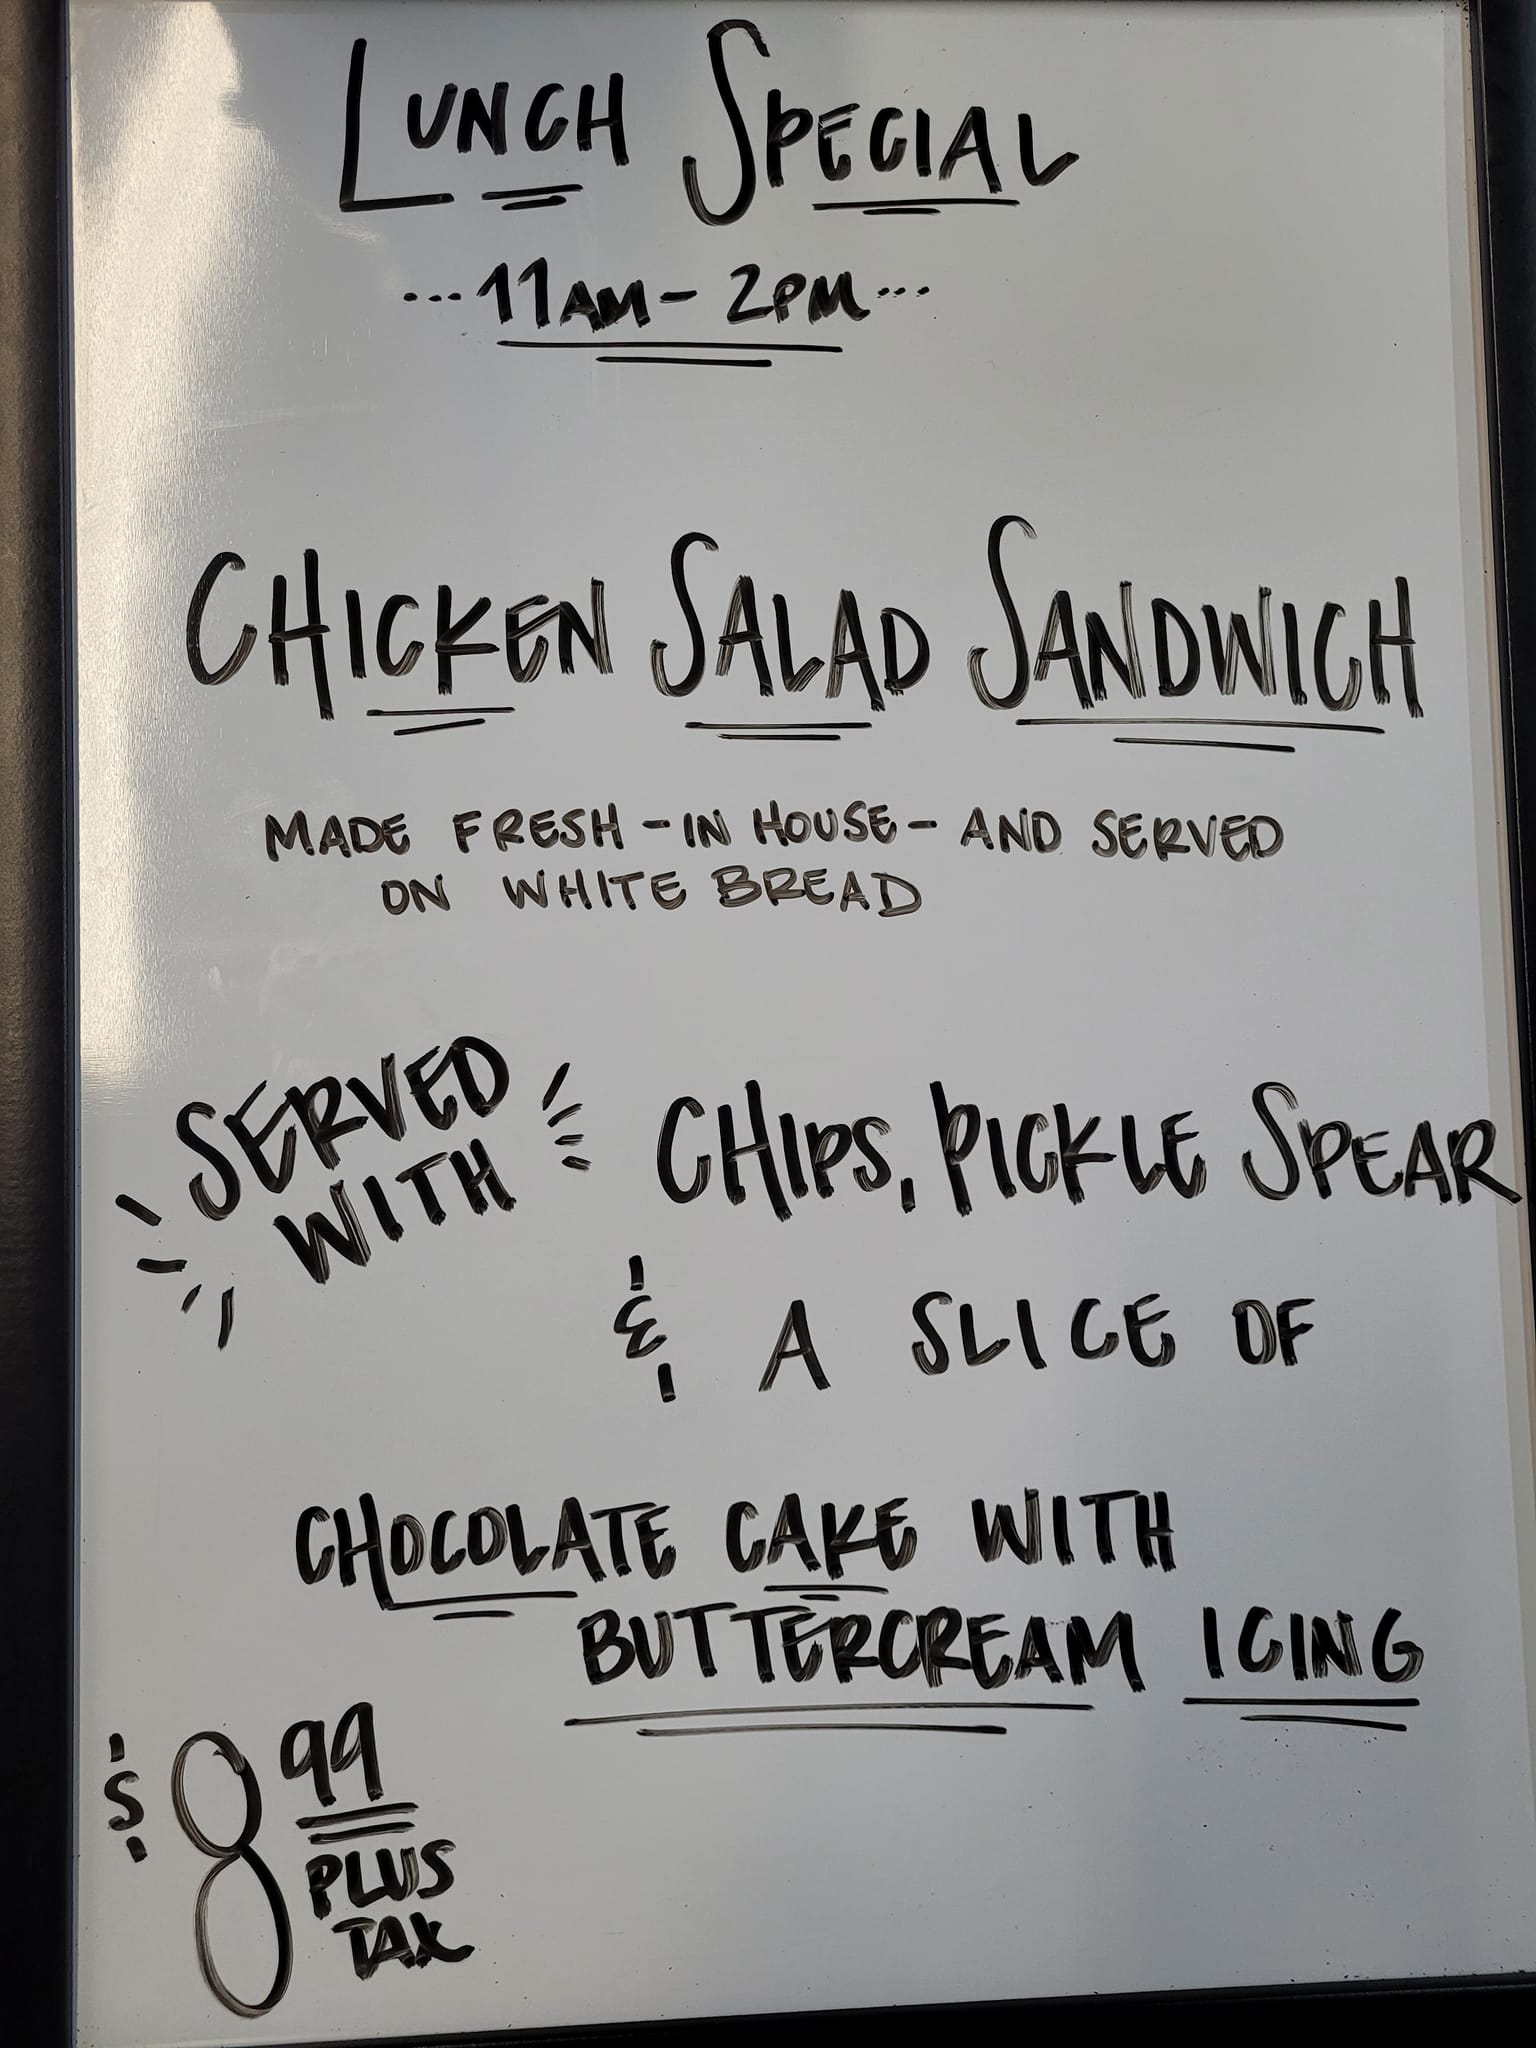 LUNCH SPECIAL
...11AM - 2PM...
CHICKEN SALAD SANDWICH
MADE FRESH - IN HOUSE - AND SERVED
ON WHITE BREAD
SERVED
WITH
CHIPS, PICKLE SPEAR
& A SLICE OF
CHOCOLATE CAKE WITH
BUTTERCREAM ICING
$8 99
PLUS
TAX